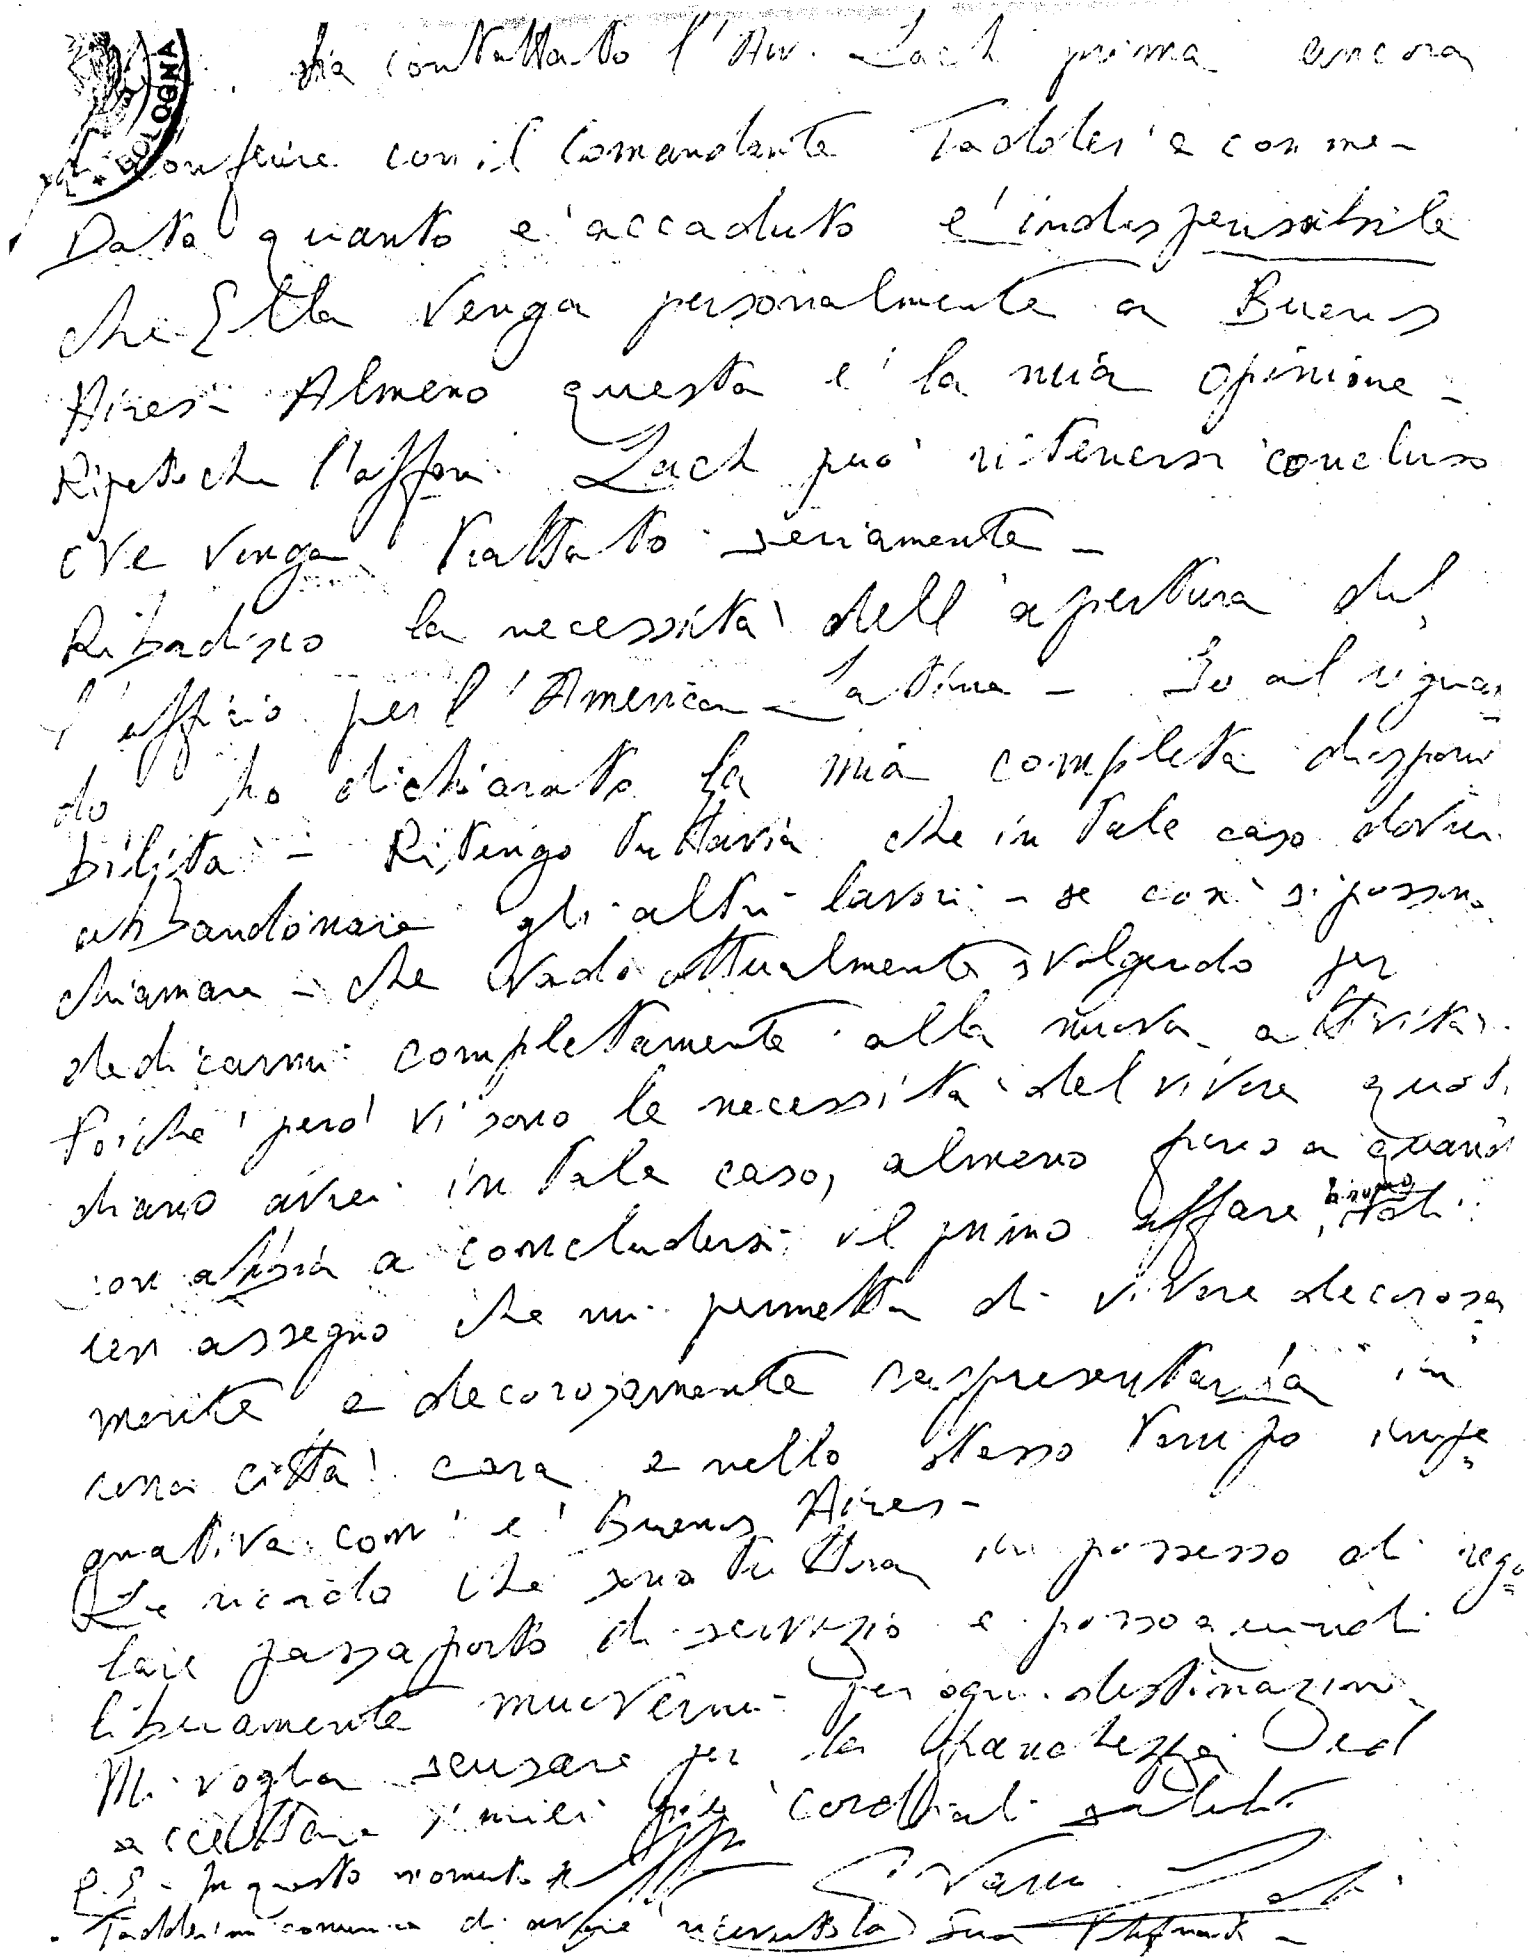 BOLOGNA
sia contattato l'Avv. Zach prima ancora
conferire con il Comandante Taddei e con me -
Dato quanto e' accaduto e' indispensabile
che Ella venga personalmente a Buenos
Aires - Almeno questa e' la mia opinione -
Ripeto che l'affare Zach puo' ritenersi concluso
ove venga trattato seriamente -
Ribadisco la necessita' dell'apertura del
l'ufficio per l'America Latina - Io al riguar
do ho dichiarato la mia completa disponi
bilita' - Ritengo tuttavia che in tale caso dovrei
abbandonare gli altri lavori - se cosi' si possono
chiamare - che vado attualmente svolgendo per
dedicarmi completamente alla nuova attivita'.
Poiche' pero' vi sono le necessita' del vivere quoti
diano avrei in tale caso, almeno fino a quando
non abbia a concludersi il primo affare, bisogno di
un assegno che mi permetta di vivere decorosa
mente e decorosamente rappresentarla in
una citta' cara e nello stesso tempo impe
gnativa com' e' Buenos Aires -
Le ricordo che sono tuttora in possesso di rego
lare passaporto di servizio e posso quindi
liberamente muovermi per ogni destinazione
Mi voglia scusare per la franchezza ed
accettare i miei piu' cordiali saluti
P.S. - In questo momento
Taddei mi comunica di avere ricevuto la Sua